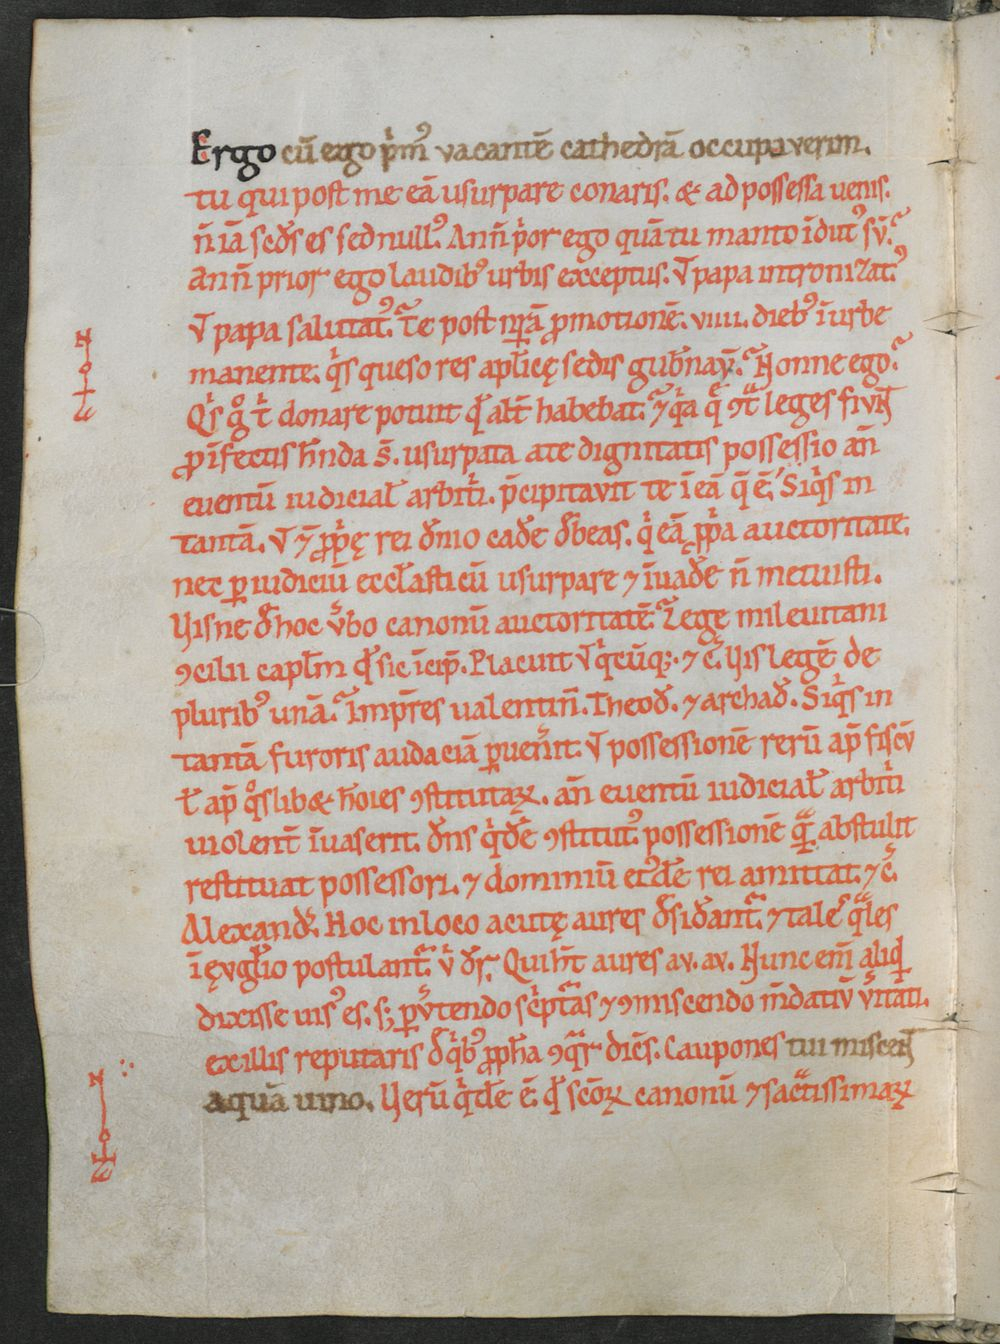 Ergo cū ergo p̄m᷒ vacantē cathedrā occupaverim.
tu qui post me eā usurpare conaris. & ad possessa venis.
ñ iā scđs es sed null᷒. Anñ p̓or ego quā tu manto īdut᷒ sū.
anñ prior ego laudib᷒ urbis exceptus. ł papa intronizat᷒
ł papa salutat᷒. Te post nr̄ā p̱motionē. viiii. dieb᷒ ī urbe
manente. q̓s queso res apłicę sedis gub̄nav̄. Nonne ego.
Q̓s g̊ t̓ donare potuit qđ alt̄ habebat. ⁊ q̓a q̄ ꝯt̄ leges fiv̄t
ꝓ īfectis h̄nda s̄. usurpata a te dignitatis possessio an̄
eventū iudicial̄ arbit̓i. p̄cipitavit te ī eā q̄ ē. Siq̓s in
tantā. ł ⁊ ꝓp̓ę rei dn̄io cađe đbeas. q̓ eā ꝓp̓a auctoritate.
nec ꝑ iudiciū eccłasticū usurpare ⁊ īvađe ñ metuisti.
Visne đ hoc v̓bo canonū auctoritatē. Lege mileuitani
ꝯcilii capłm qđ sic īcip̄. Placuit ł q̓cūq;. ⁊ c̄. Vis legē de
plurib᷒ unā. Imp̄res valentin̄. Theođ. ⁊ archađ. Siq̓s in
tantā furoris audaciā ꝑven̓it. ł possessionē rerū ap̄ fiscū
ł ap̄ q̊slib& hōies ꝯstitutaꝝ. an̄ eventū iudicial̄ arbit̓i
violent̄ īvaserit. dn̄s q̓đē ꝯstitut᷒ possessionē quā abstulit
restituat possessori. ⁊ dominiū ei᷒dē rei amittat. ⁊ c̄.
Alexanđ. Hoc in loco acutę aures đsiđant̄. ⁊ tales q̄les
ī ęvgłio postulant̄. ł đr. Qui h̄t aures av. av. Nunc em̄ aliqđ
dixisse vis᷒ es. s; ꝑv̓tendo sc̓pt̄as ⁊ ꝯmiscendo m̄datiū v̓itati.
ex illis reputaris đ q̓b᷒ ꝓph̄a ꝯq̄r dic̄s. Caupones tui misceb̄t
aquā vino. Verū q̓đē ē. qđ sc̄oꝝ canonū ⁊ sac̄tissimaꝝ